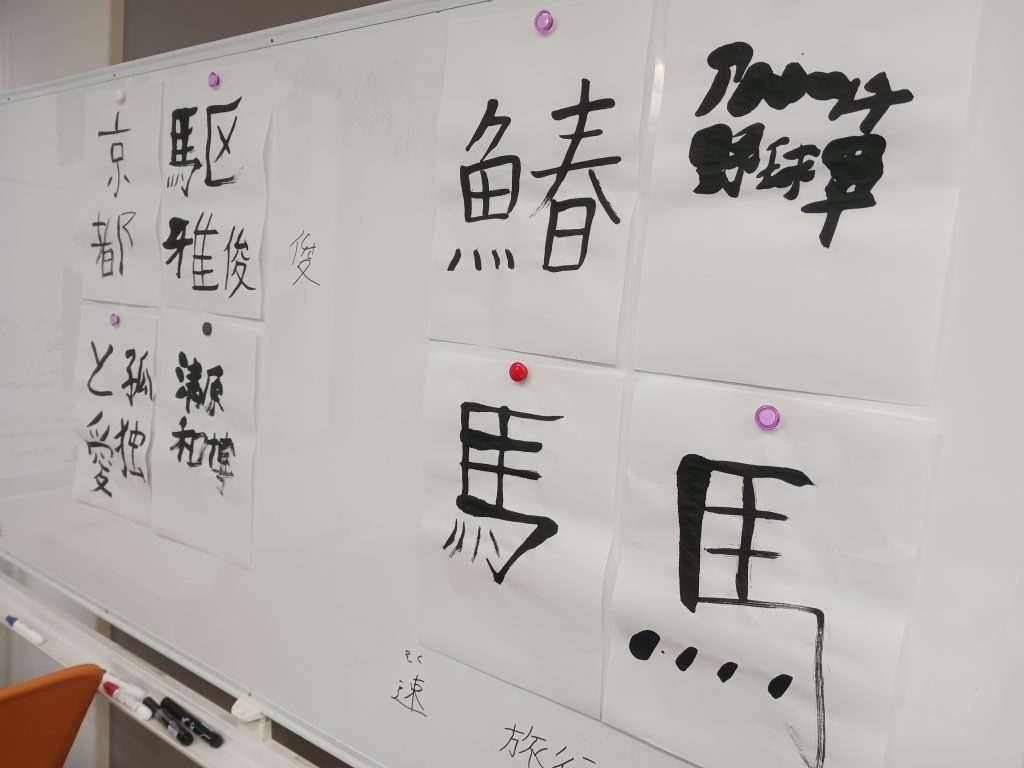 京都
駆
雅俊
孤独
と愛
清原
和博
俊
鰆
野球
馬
馬
そく
速
旅行